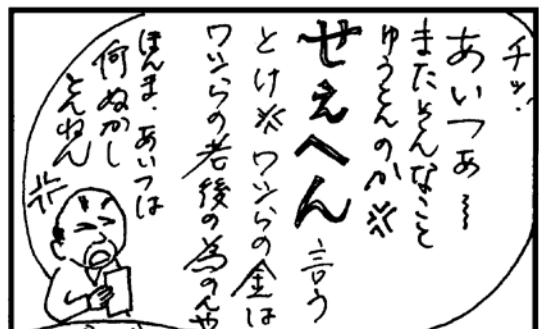 チッ、
あいつぁ〜
またそんなこと
ゆうとんのか💢
せぇへん言う
とけ💢ワシらの金は
ワシらの老後の為のんや
ほんま、あいつは
何ぬかし
とんねん